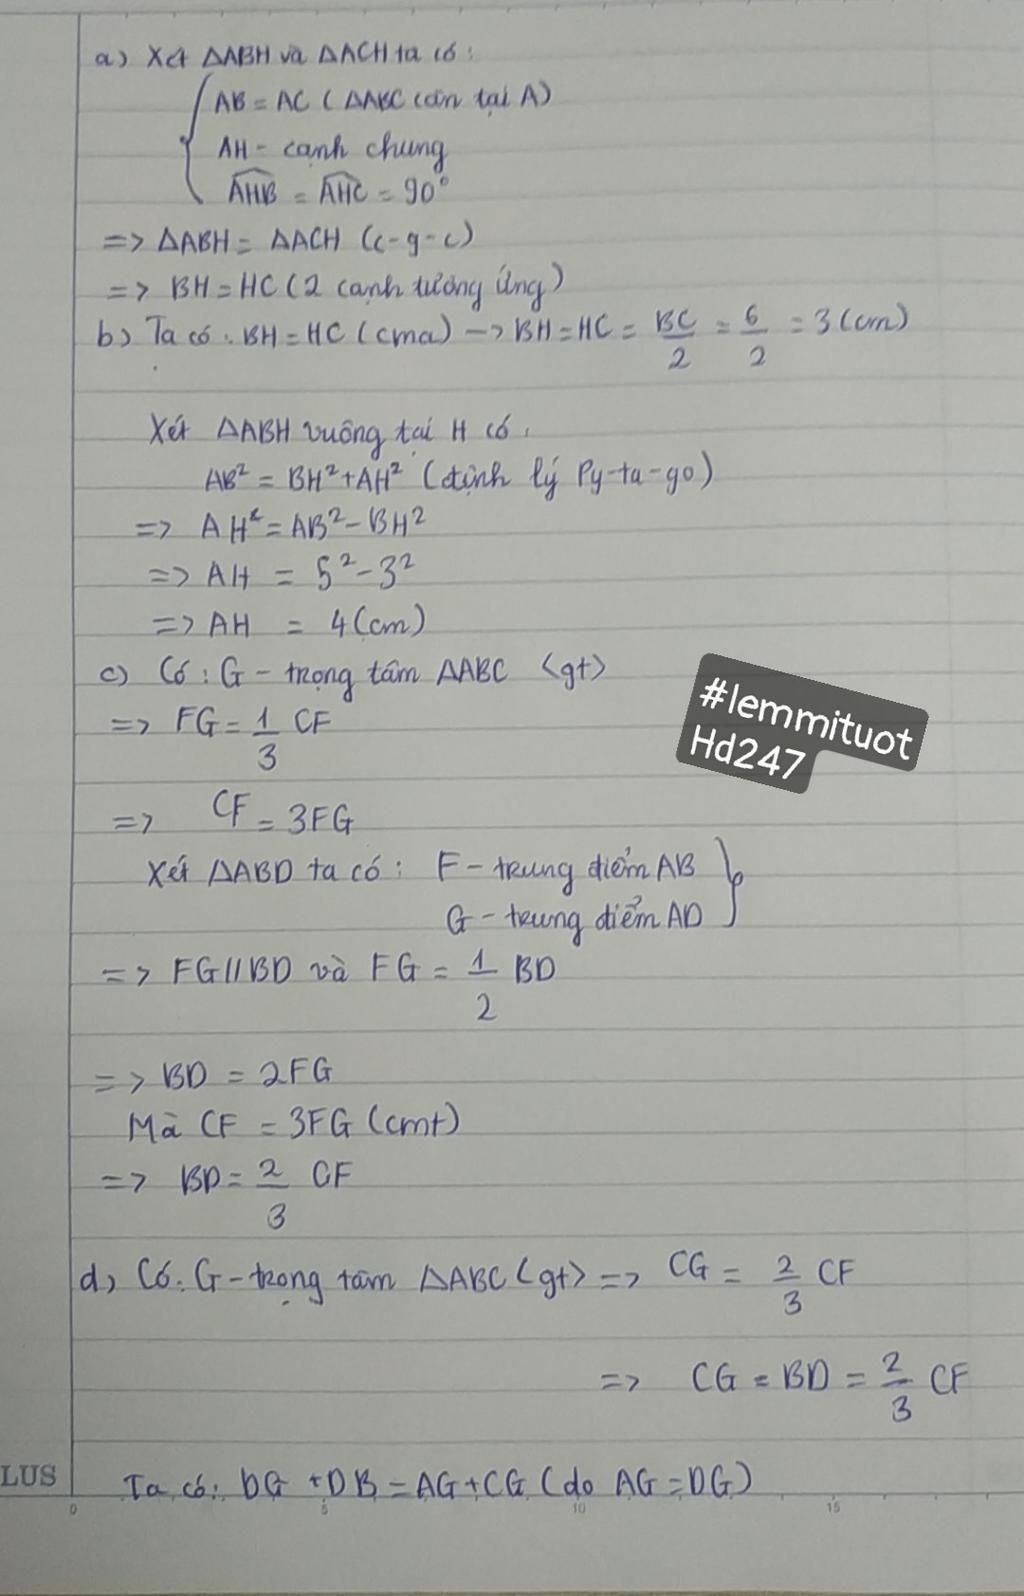 a) Xét ΔABH và ΔACH ta có:
AB = AC (ΔABC cân tại A)
AH - cạnh chung
\widehat{AHB} = \widehat{AHC} = 90°
=> ΔABH = ΔACH (c-g-c)
=> BH = HC (2 cạnh tương ứng)
b) Ta có: BH = HC (cma) -> BH = HC = BC/2 = 6/2 = 3 (cm)
Xét ΔABH vuông tại H có:
AB² = BH² + AH² (định lý Py-ta-go)
=> AH² = AB² - BH²
=> AH = 5² - 3²
=> AH = 4 (cm)
c) Có: G - trọng tâm ΔABC <gt>
=> FG = 1/3 CF
#lemmituot
Hd247
=> CF = 3FG
Xét ΔABD ta có: F - trung điểm AB
G - trung điểm AD
=> FG // BD và FG = 1/2 BD
=> BD = 2FG
Mà CF = 3FG (cmt)
=> BD = 2/3 CF
d) Có: G - trọng tâm ΔABC <gt> => CG = 2/3 CF
=> CG = BD = 2/3 CF
LUS
Ta có: DG + DB = AG + CG (do AG = DG)
0 5 10 15